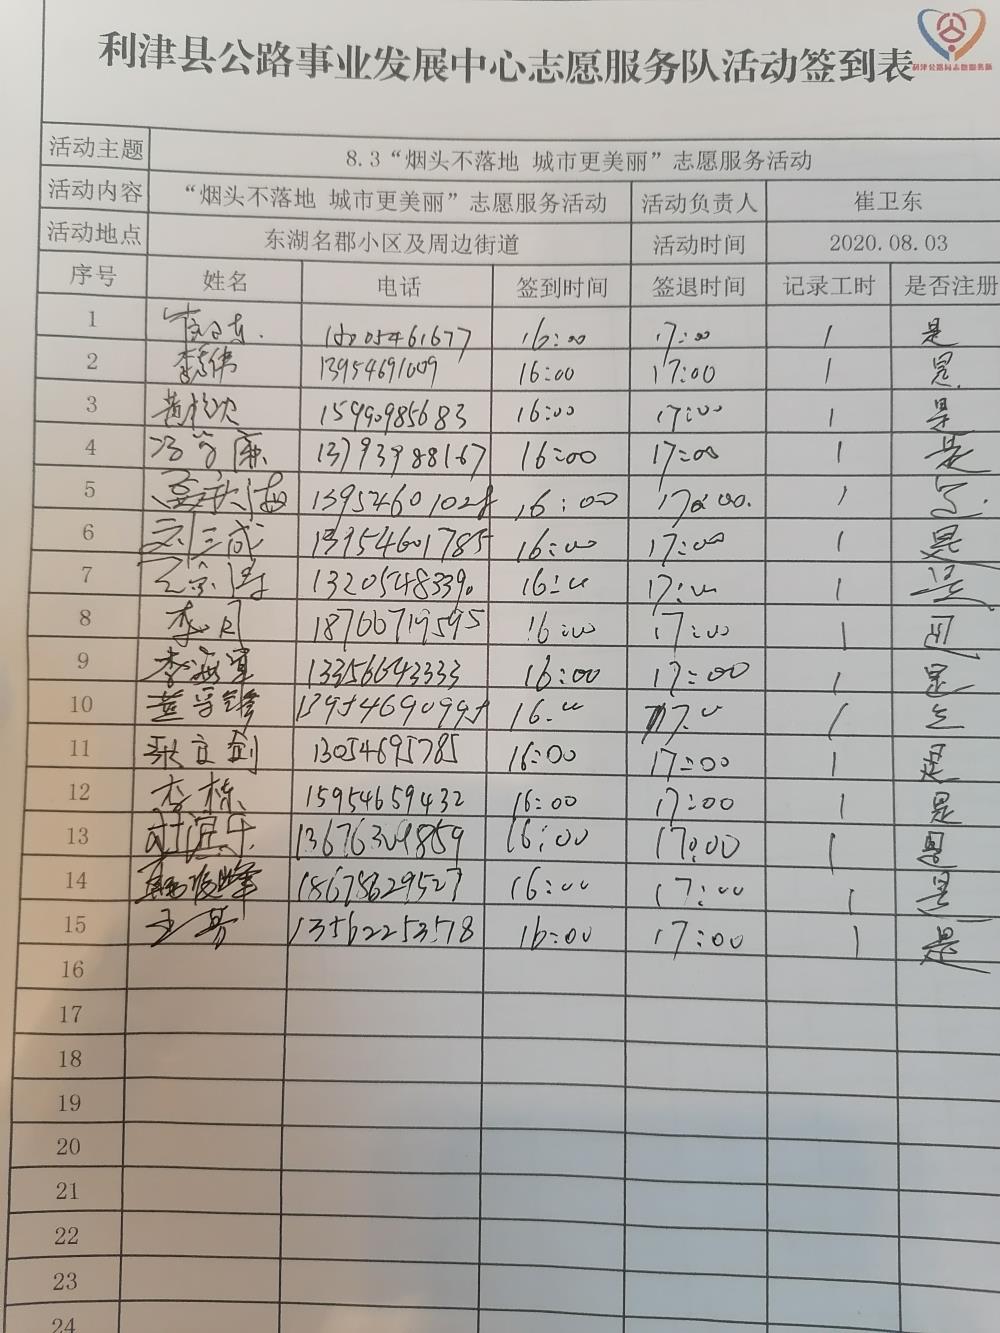 利津县公路事业发展中心志愿服务队活动签到表
利津公路局志愿服务队
活动主题 8.3“烟头不落地 城市更美丽”志愿服务活动
活动内容 “烟头不落地 城市更美丽”志愿服务活动 活动负责人 崔卫东
活动地点 东湖名郡小区及周边街道 活动时间 2020.08.03
序号 姓名 电话 签到时间 签退时间 记录工时 是否注册
1 16:00 17:00 1 是
2 李伟 13954691009 16:00 17:00 1 是
3 15990985683 16:00 17:00 1 是
4 冯学廉 13793988167 16:00 17:00 1 是
5 16:00 17:00. 1
6 刘三成 13954601785 16:00 17:00 1 是
7 16:00 17:00 1 是
8 李 18766719595 16:00 17:00 1
9 李海军 13356643333 16:00 17:00 1 是
10 16:00 17:00 1
11 张立钊 13054695785 16:00 17:00 1 是
12 李栋 15954659432 16:00 17:00 1 是
13 13676309859 16:00 17:00 1 是
14 18678629527 16:00 17:00 1 是
15 王芳 13562253578 16:00 17:00 1 是
16
17
18
19
20
21
22
23
24